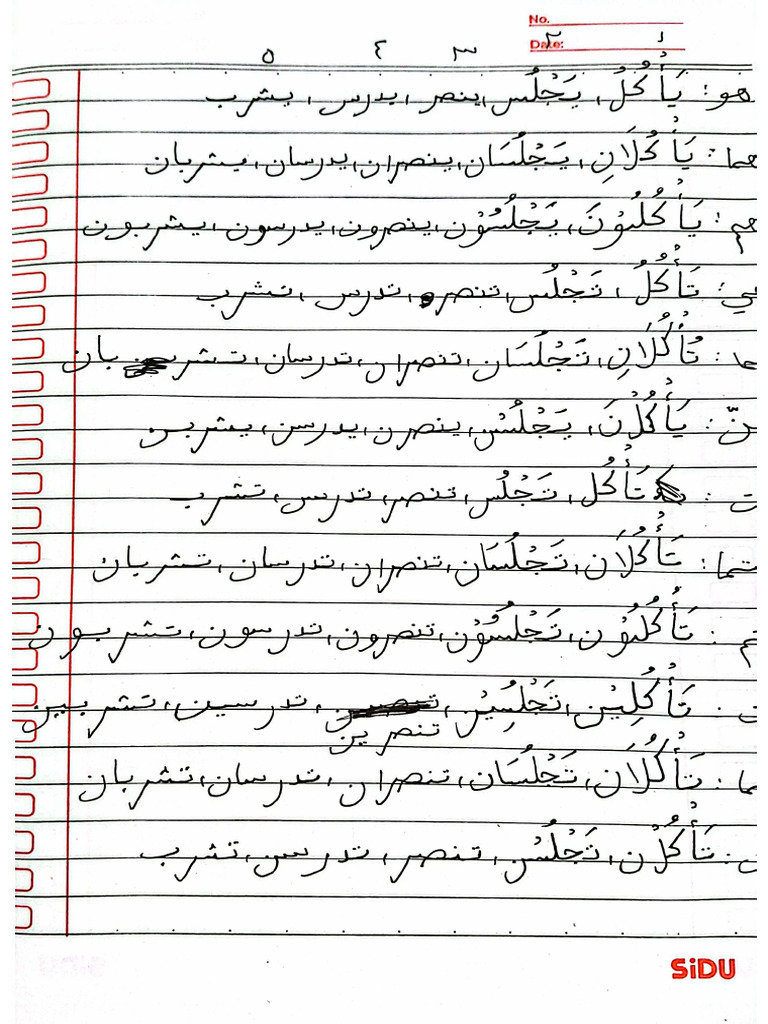 No.
Date:
١ ٢ ٣ ٤ ٥
هو: يَأْكُلُ، يَجْلُسُ، ينصر، يدرس، يشرب
هما: يَأْكُلَانِ، يَجْلُسَان، ينصران، يدرسان، يشربان
هم: يَأْكُلُوْنَ، يَجْلُسُوْن، ينصرون، يدرسون، يشربون
ي: تَأْكُلُ، تَجْلُس، تنصر، تدرس، تشرب
ما: تَأْكُلَانِ، تَجْلُسَان، تنصران، تدرسان، تشربان
نّ: يَأْكُلْنَ، يَجْلُسْن، ينصرن، يدرسن، يشربن
ت: تَأْكُل، تَجْلُس، تنصر، تدرس، تشرب
تما: تَأْكُلَان، تَجْلُسَان، تنصران، تدرسان، تشربان
تم: تَأْكُلُوْن، تَجْلُسُوْن، تنصرون، تدرسون، تشربون
ت: تَأْكُلِيْن، تَجْلُسِيْن، تدرسين، تشربين
تنصرين
ما: تَأْكُلَان، تَجْلُسَان، تنصران، تدرسان، تشربان
ن: تَأْكُلْن، تَجْلُسْن، تنصر، تدرسن، تشرب
SiDU